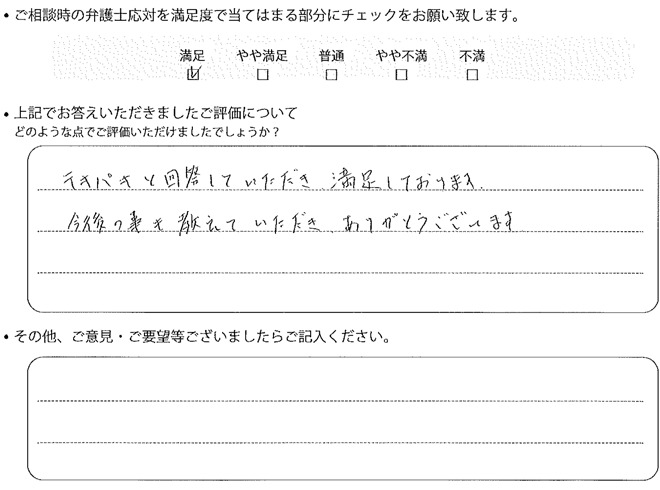 • ご相談時の弁護士応対を満足度で当てはまる部分にチェックをお願い致します。
満足 やや満足 普通 やや不満 不満
☑ ☐ ☐ ☐ ☐
• 上記でお答えいただきましたご評価について
どのような点でご評価いただけましたでしょうか？
テキパキと回答していただき、満足しております。
今後の事も教えていただき、ありがとうございます
• その他、ご意見・ご要望等ございましたらご記入ください。